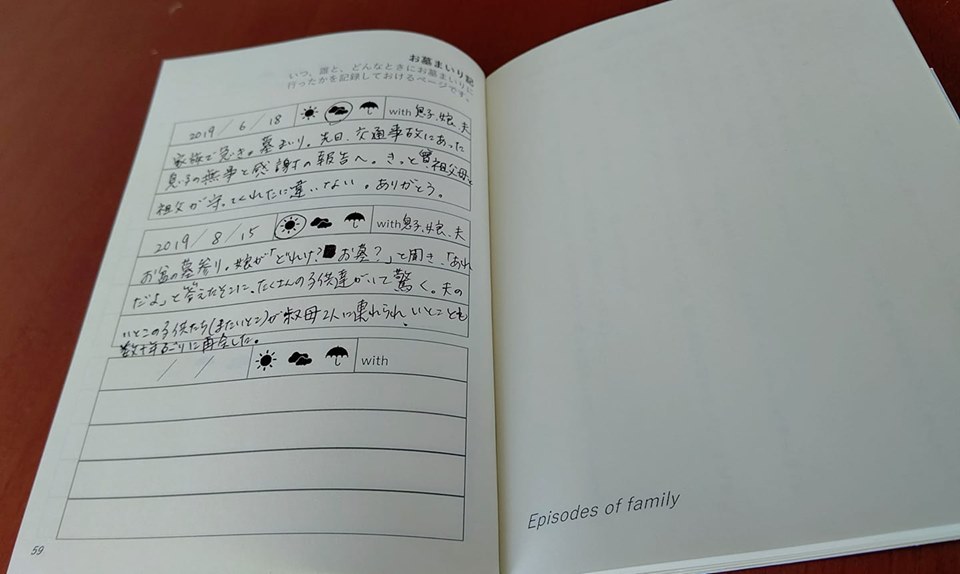 お墓まいり記
いつ、誰と、どんなときにお墓まいりに
行ったかを記録しておけるページです。
2019 / 6 / 18 with 息子、娘、夫
家族で急き。墓まいり。先日、交通事故にあった
息子の無事と感謝の報告へ。きっと曽祖父母と
祖父が守ってくれたに違いない。ありがとう。
2019 / 8 / 15 with 息子、娘、夫
お盆の墓参り。娘が「どれ?お墓?」と聞き、「あれ
だよ」と答えたそこに、たくさんの子供達がいて驚く。夫の
いとこの子供たち(またいとこ)が叔母2人に連れられ、いとことも
数十年ごりに再会した。
/ / with
59
Episodes of family